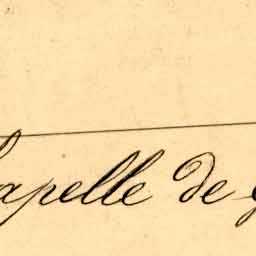 Chapelle de